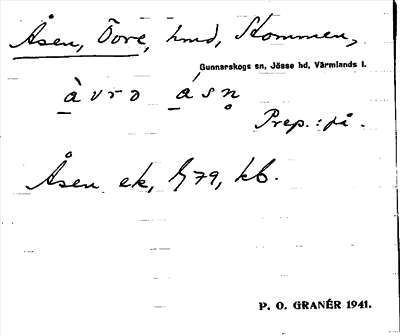 Åsen, Övre, hmd, Stommen,
Gunnarskogs sn, Jösse hd, Värmlands l.
àvrə ásn̥
Prep.: på.
Åsen ek, G79, kb.
P. O. GRANÉR 1941.